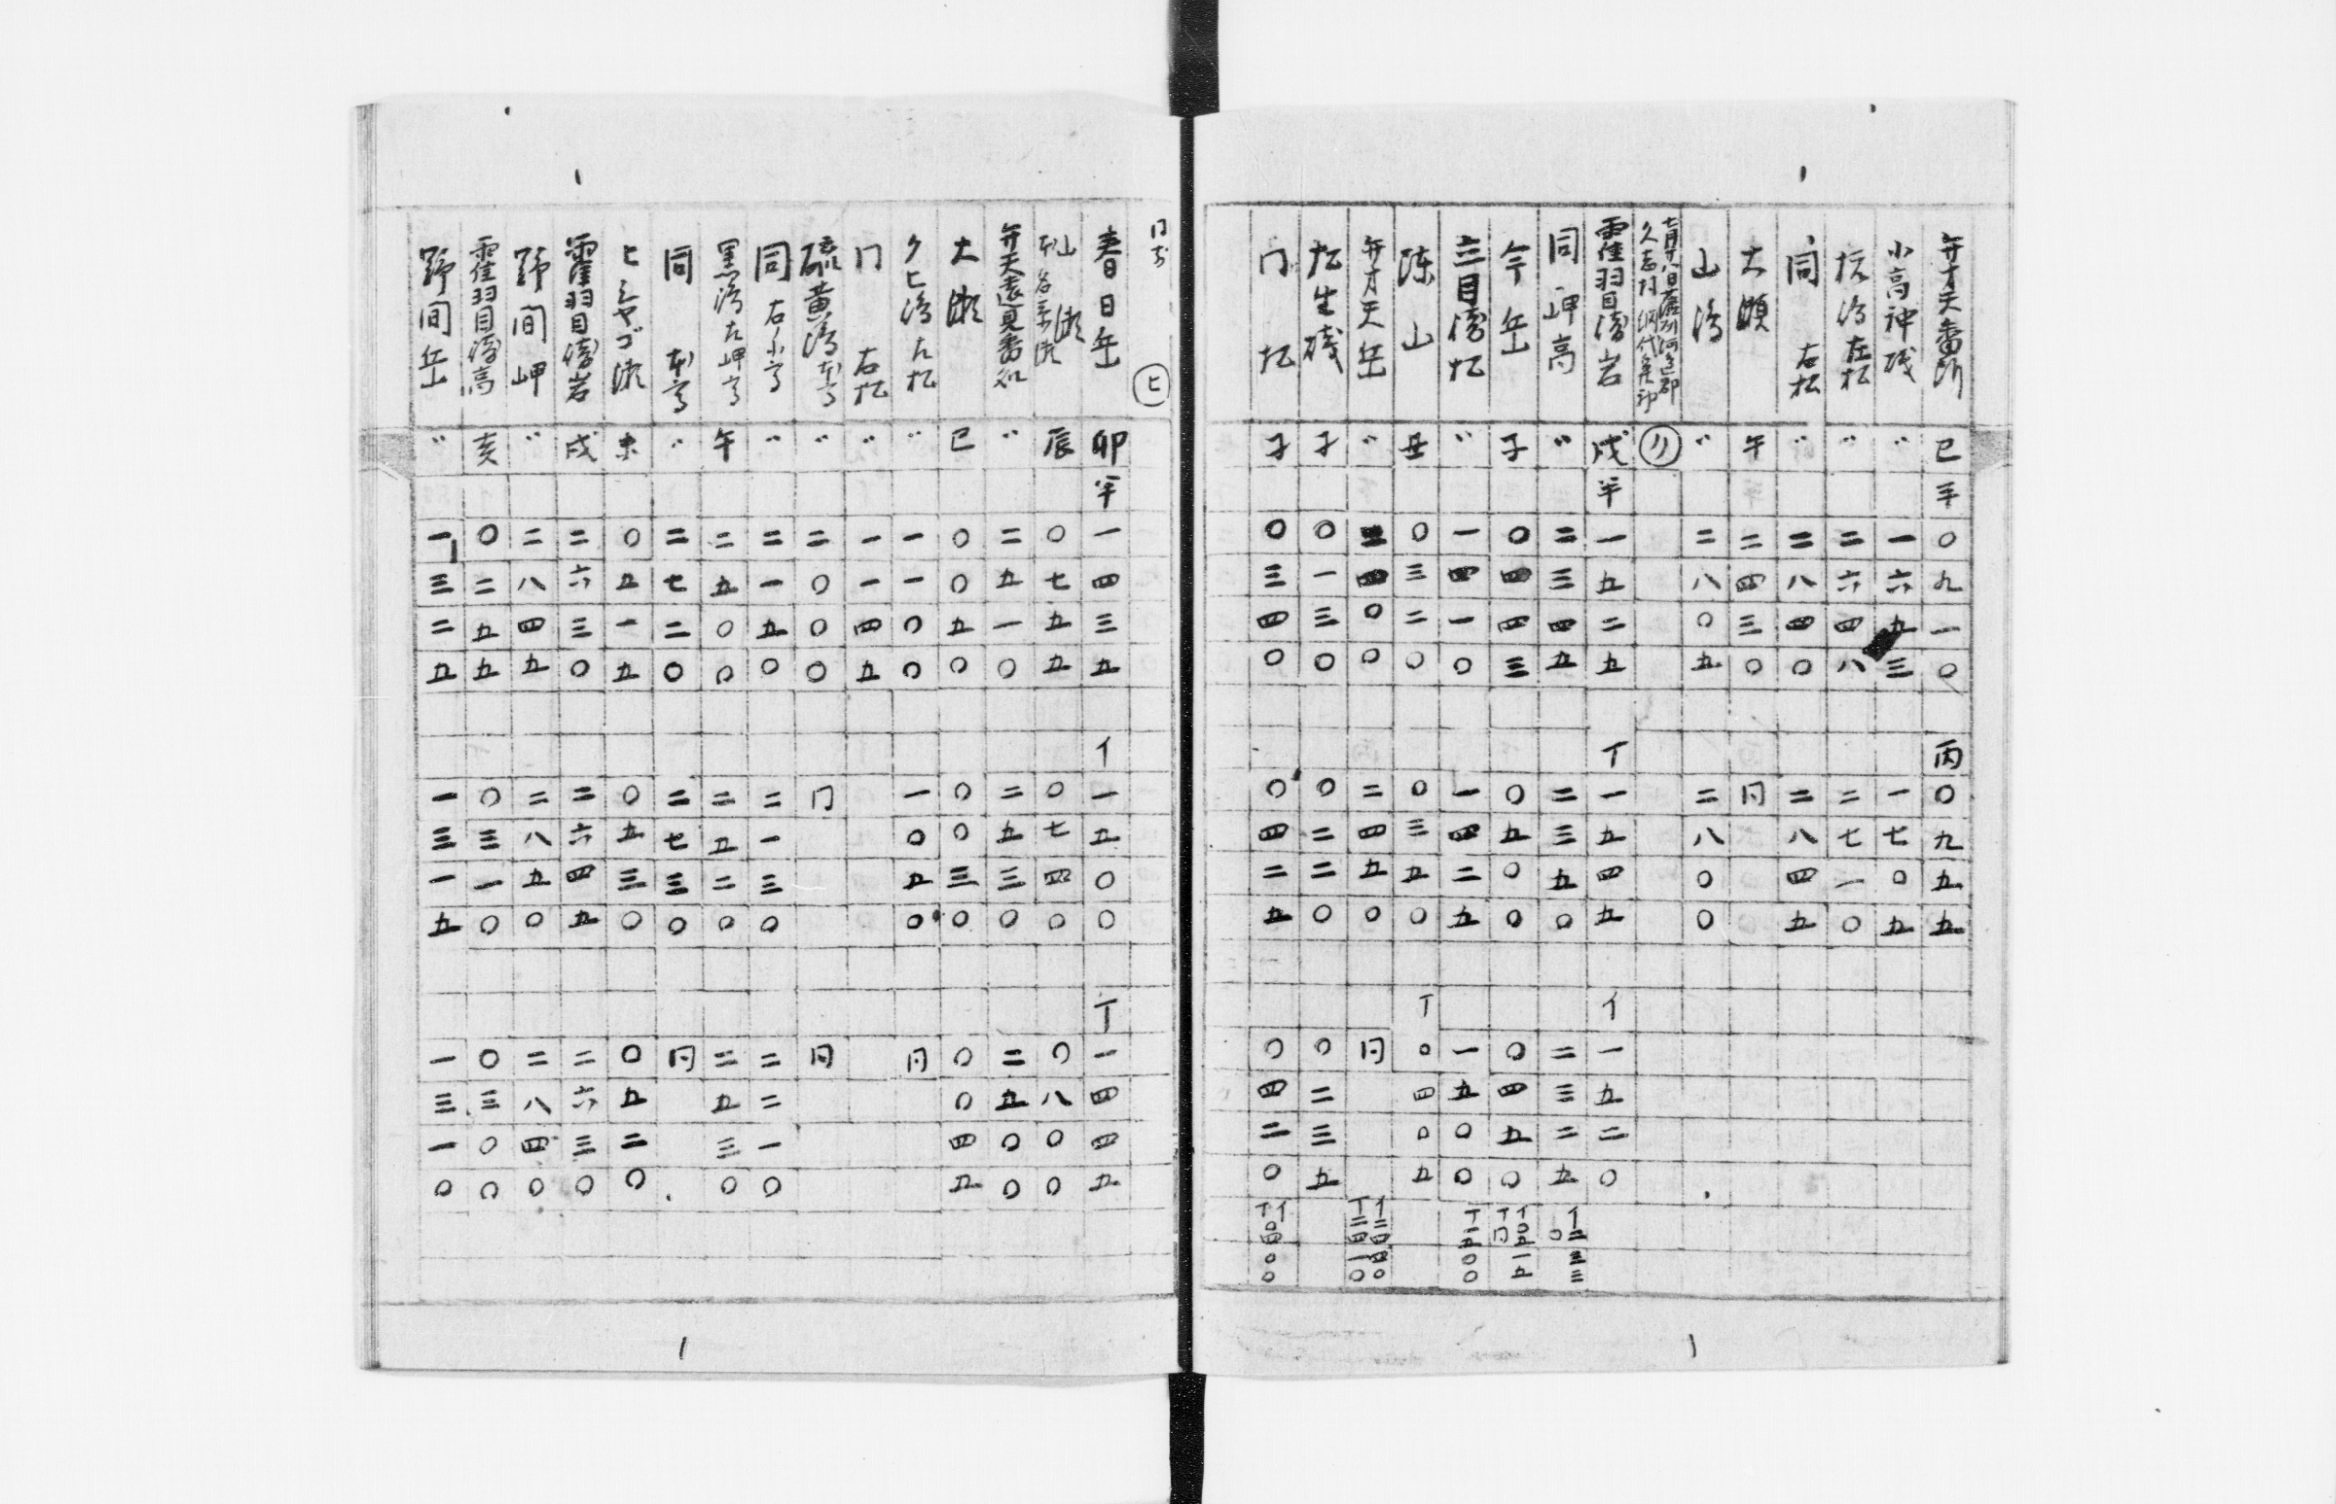 弁才天番所 巳 半 〇九一〇 丙 〇九五五
小高神礒 〃 一六五三 一七〇五
抗浮左松 〃 二六四八 二七一〇
同 右松 〃 二八四〇 二八四五
大瀬 午 二四三〇 同
山浮 〃 二八〇五 二八〇〇
七月廿八日薩州河邉郡
久志村 網代 リ
霍羽目傍岩 戌 半 一五二五 丁 一五四五 イ 一五二〇
同岬高 〃 二三四五 二三五〇 二三二五 イ 二三三
今岳 子 〇四四三 〇五〇〇 〇四五〇 イ 〇五一五 丁 同
三目傍松 〃 一四一〇 一四二五 一五〇〇 丁 一五〇〇
陳山 丑 〇三二〇 〇三五〇 丁 〇四〇五
弁才天岳 〃 二四〇〇 二四五〇 同 イ 二四四〇 丁 二四一〇
松生礒 子 〇一三〇 〇二二〇 〇二三五
同松 子 〇三四〇 〇四二五 〇四二〇 イ 丁 〇四〇〇
同所 ヒ
春日岳 卯 半 一四三五 イ 一五〇〇 丁 一四四五
山瀬 辰 〇七五五 〇七四〇 〇八〇〇
弁天遠見番処 〃 二五一〇 二五三〇 二五〇〇
大瀬 巳 〇〇五〇 〇〇三〇 〇〇四五
クヒ浮左松 〃 一一〇〇 一〇五〇 同
同 右松 〃 一一四五
硫黄浮 〃 二〇〇〇 同 同
同 右小高 〃 二一五〇 二一三〇 二二一〇
黒浮左岬高 午 二五〇〇 二五二〇 二五三〇
同 〃 二七二〇 二七三〇 同
ヒシヤゴ瀬 未 〇五一五 〇五三〇 〇五二〇
霍羽目傍岩 戌 二六三〇 二六四五 二六三〇
野間岬 〃 二八四五 二八五〇 二八四〇
霍羽目傍高 亥 〇二五五 〇三一〇 〇三〇〇
野間岳 〃 一三二五 一三一五 一三一〇